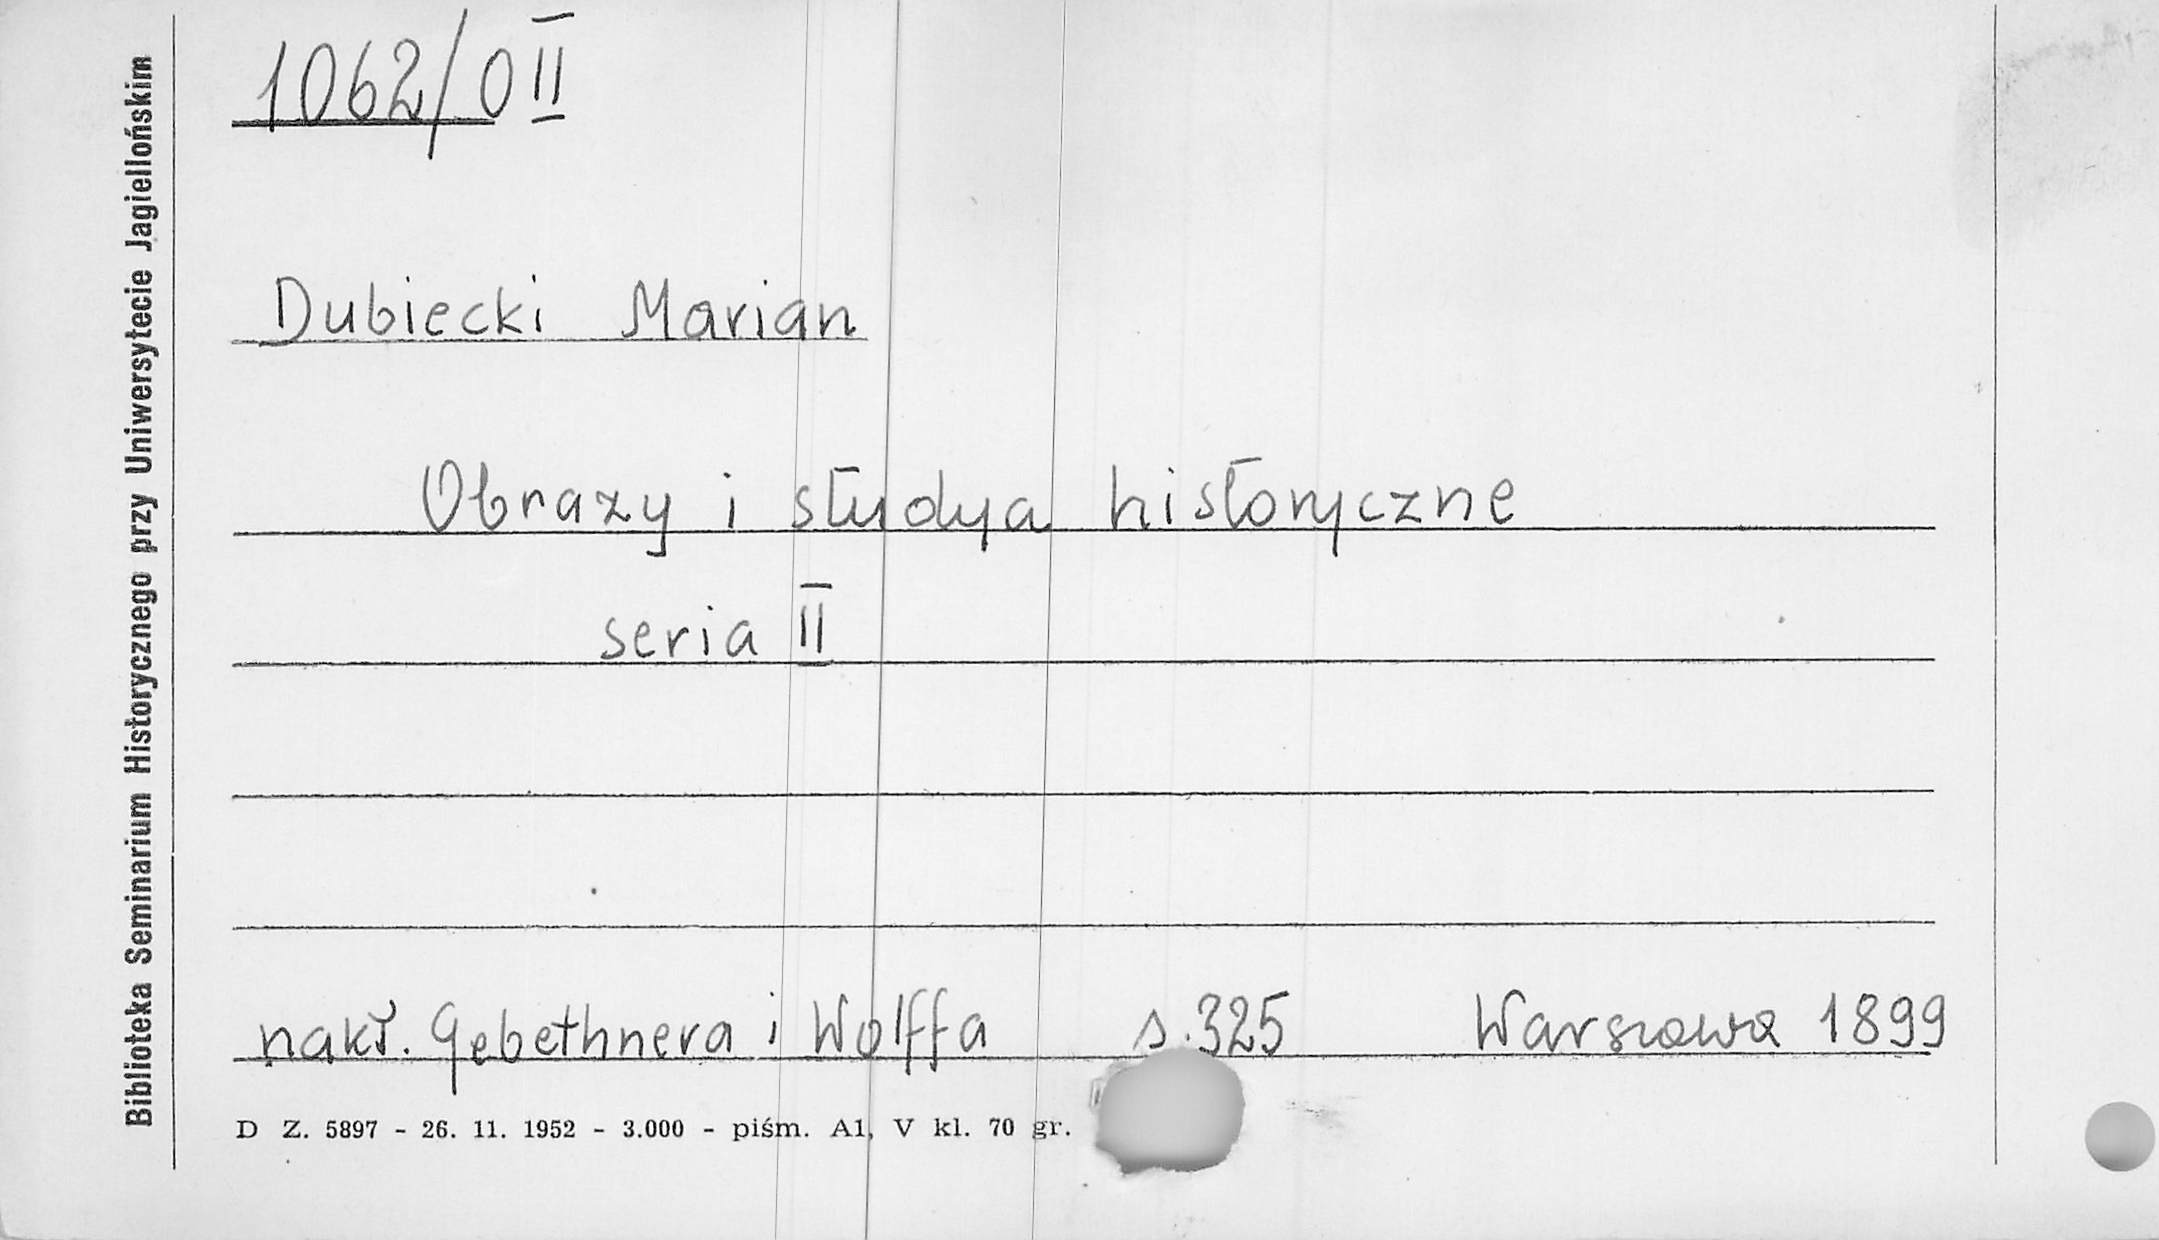 1062/0 II
Dubiecki Marian
Obrazy i studya historyczne
seria II
nakł. Gebethnera i Wolffa s. 325 Warszawa 1899
D Z. 5897 - 26. 11. 1952 - 3.000 - piśm. A1, V kl. 70 gr.
Biblioteka Seminarium Historycznego przy Uniwersytecie Jagiellońskim